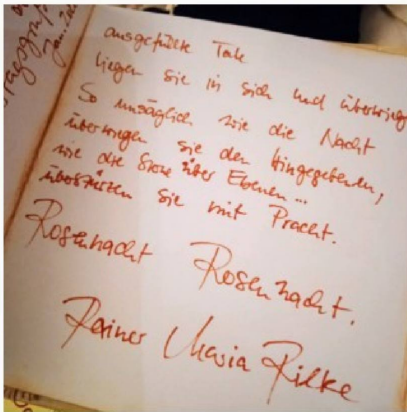 ausgefüllte Tale
liegen sie in sich und überwiegen
So unsäglich wie die Nacht
überwiegen sie den Hingegebenen,
wie die Sterne über Ebenen...
überstürzen sie mit Pracht.
Rosennacht Rosennacht.
Rainer Maria Rilke